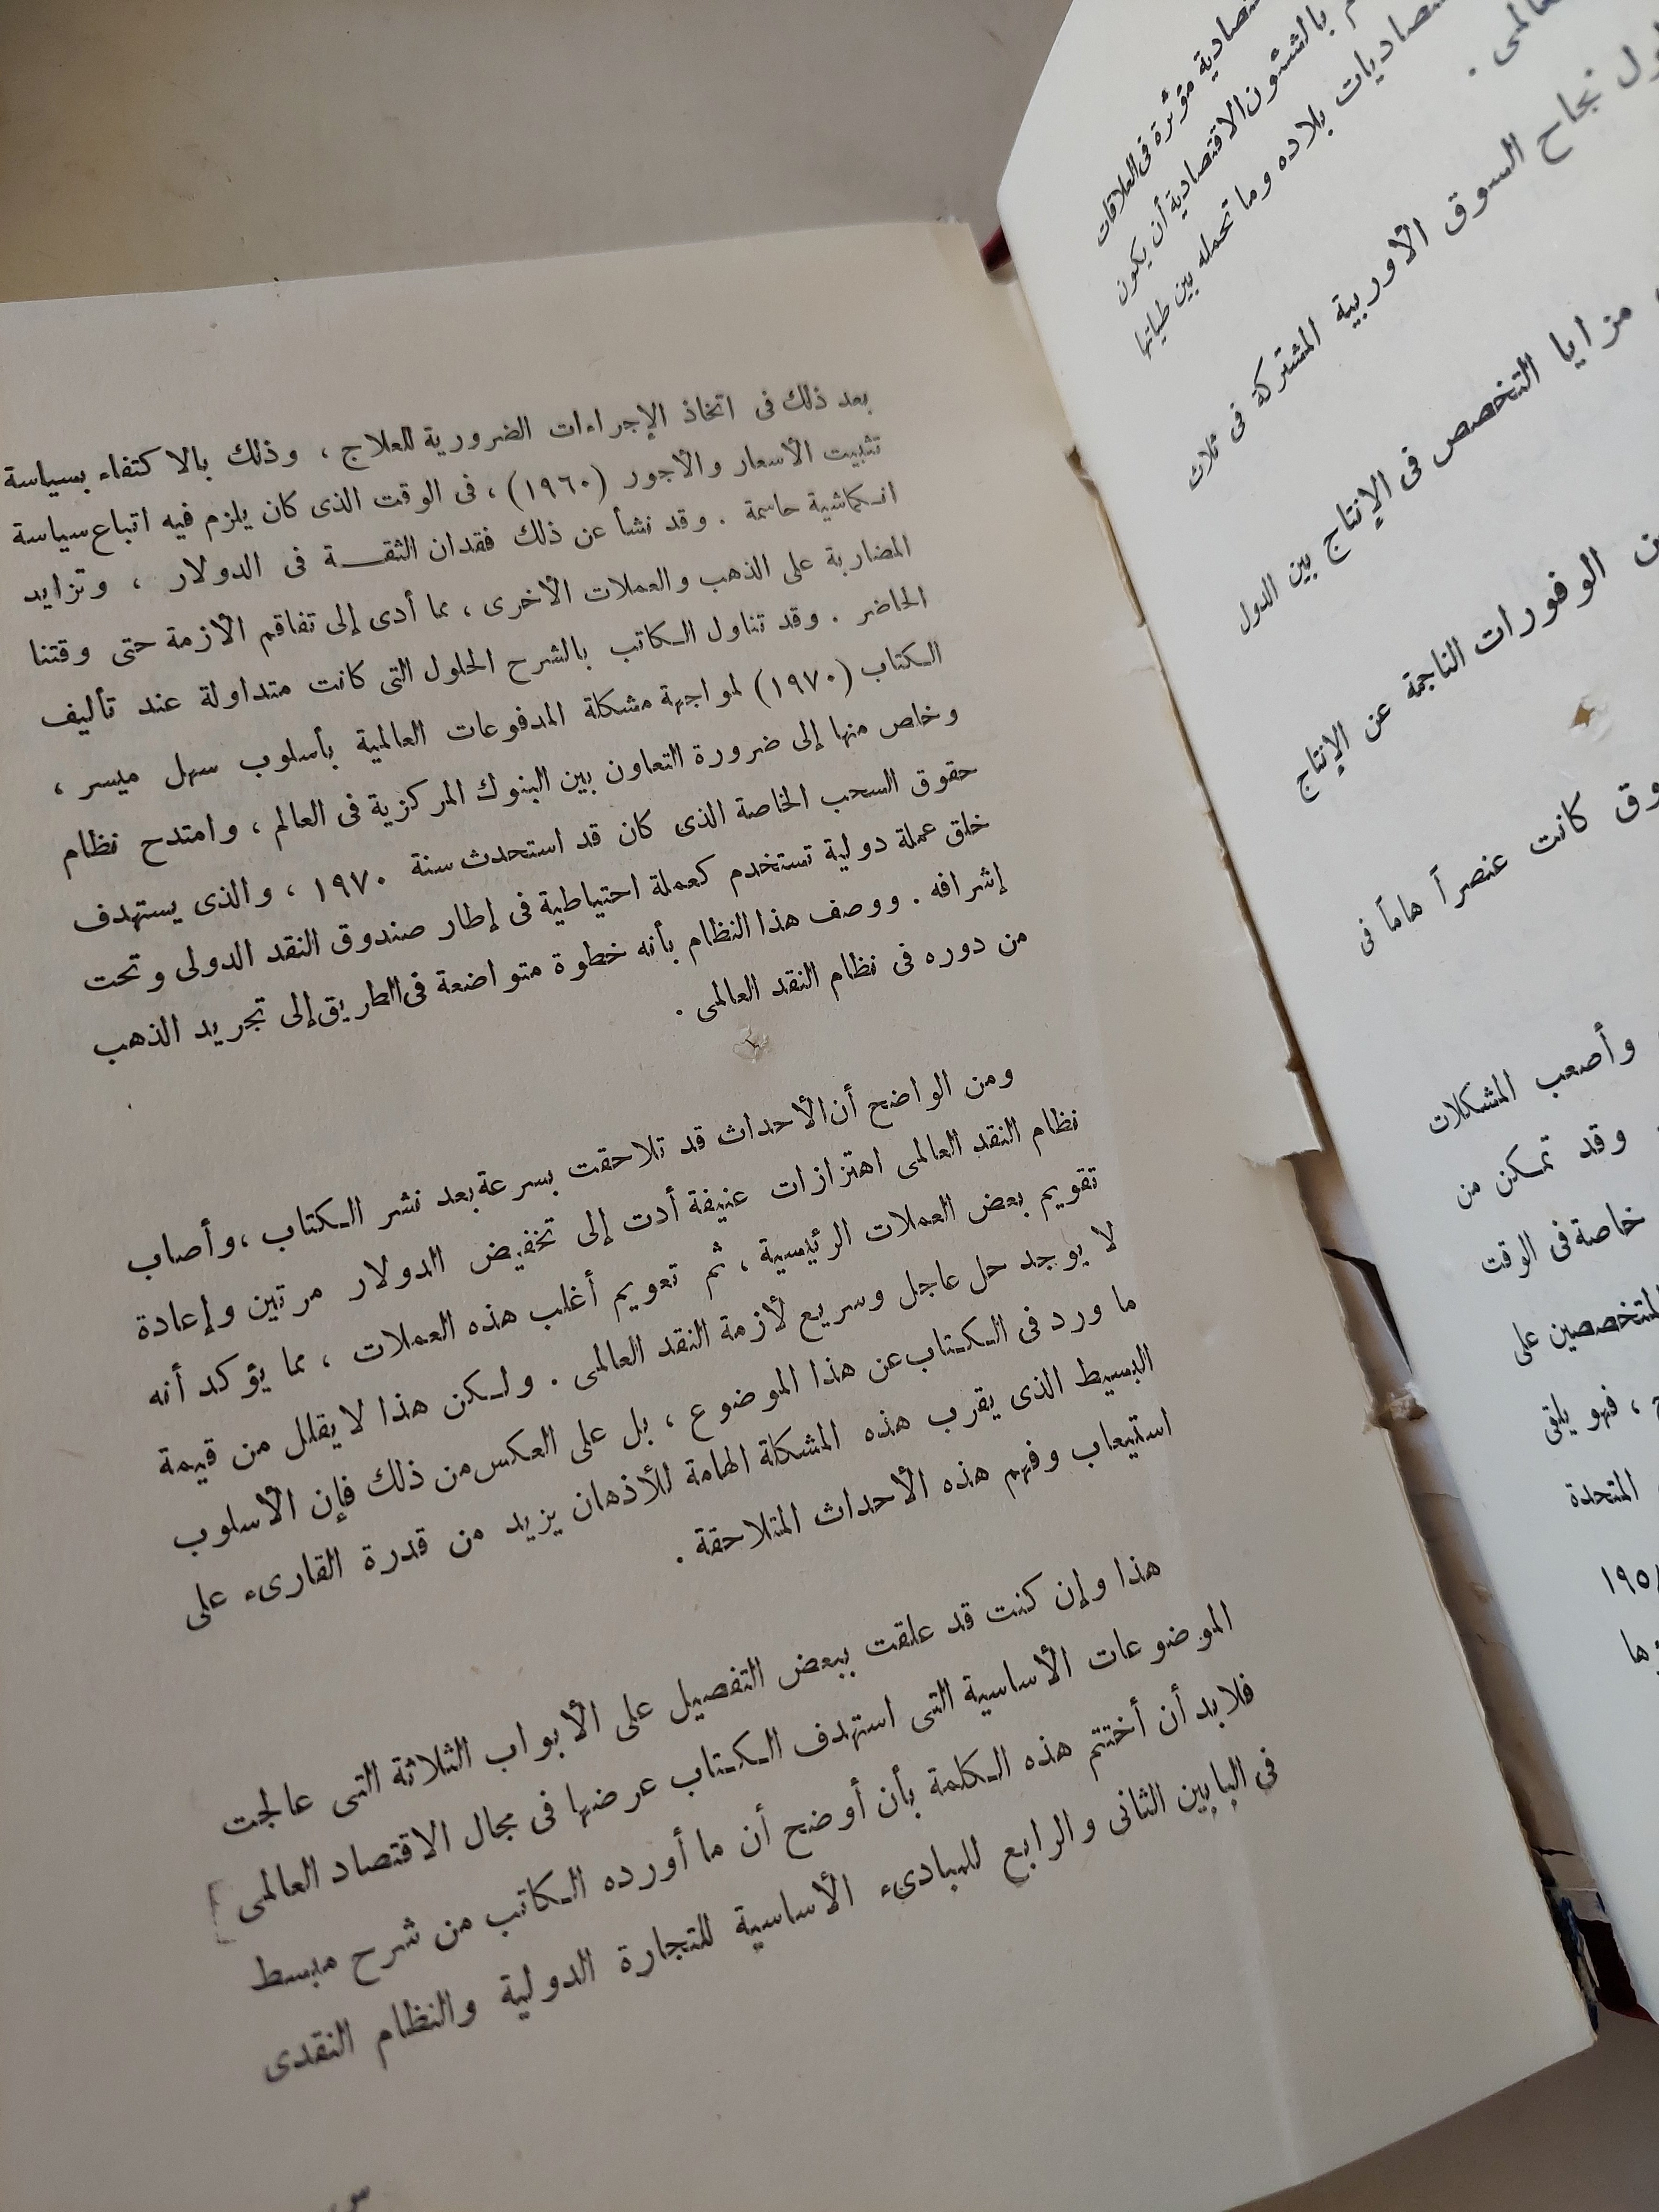 مؤثرة فى العلاقات
بالشئون الاقتصادية أن يكون
بلاده وما تحمله بين طياتها
نجاح السوق الأوربية المشتركة فى ثلاث
مزايا التخصص فى الإنتاج بين الدول
الوفورات الناجمة عن الإنتاج
كانت عنصراً هاماً فى
وأصعب المشكلات
وقد تمكن من
خاصة فى الوقت
على
، فهو يلقى
المتحدة
بعد ذلك فى اتخاذ الإجراءات الضرورية للعلاج ، وذلك بالاكتفاء بسياسة
تثبيت الأسعار والأجور (١٩٦٠) ، فى الوقت الذى كان يلزم فيه اتباع سياسة
انكماشية حاسمة . وقد نشأ عن ذلك فقدان الثقة فى الدولار ، وتزايد
المضاربة على الذهب والعملات الأخرى ، مما أدى إلى تفاقم الأزمة حتى وقتنا
الحاضر . وقد تناول الكاتب بالشرح الحلول التى كانت متداولة عند تأليف
الكتاب (١٩٧٠) لمواجهة مشكلة المدفوعات العالمية بأسلوب سهل ميسر ،
وخلص منها إلى ضرورة التعاون بين البنوك المركزية فى العالم ، وامتدح نظام
حقوق السحب الخاصة الذى كان قد استحدث سنة ١٩٧٠ ، والذى يستهدف
خلق عملة دولية تستخدم كعملة احتياطية فى إطار صندوق النقد الدولى وتحت
إشرافه . ووصف هذا النظام بأنه خطوة متواضعة فى الطريق إلى تجريد الذهب
من دوره فى نظام النقد العالمى .
ومن الواضح أن الأحداث قد تلاحقت بسرعة بعد نشر الكتاب ، وأصاب
نظام النقد العالمى اهتزازات عنيفة أدت إلى تخفيض الدولار مرتين وإعادة
تقويم بعض العملات الرئيسية ، ثم تعويم أغلب هذه العملات ، مما يؤكد أنه
لا يوجد حل عاجل وسريع لأزمة النقد العالمى . ولكن هذا لا يقلل من قيمة
ما ورد فى الكتاب عن هذا الموضوع ، بل على العكس من ذلك فإن الأسلوب
البسيط الذى يقرب هذه المشكلة الهامة للأذهان يزيد من قدرة القارىء على
استيعاب وفهم هذه الأحداث المتلاحقة .
هذا وإن كنت قد علقت ببعض التفصيل على الأبواب الثلاثة التى عالجت
الموضوعات الأساسية التى استهدف الكتاب عرضها فى مجال الاقتصاد العالمى
فلابد أن أختتم هذه الكلمة بأن أوضح أن ما أورده الكاتب من شرح مبسط
فى البابين الثانى والرابع للمبادىء الأساسية للتجارة الدولية والنظام النقدى